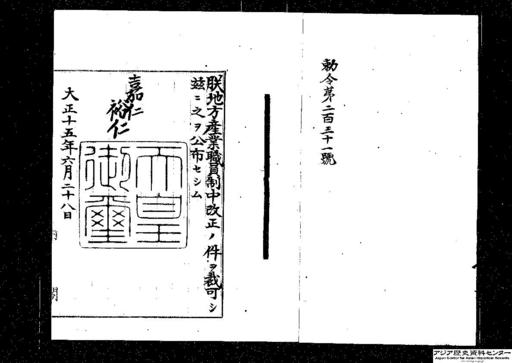 勅令第二百三十一號
朕地方産業職員制中改正ノ件ヲ裁可シ
茲ニ之ヲ公布セシム
嘉仁
裕仁
天皇御璽
大正十五年六月二十八日
内閣
アジア歴史資料センター
Japan Center for Asian Historical Records